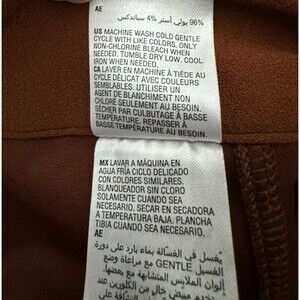 AE
96% بولي أستر 4% سباندكس
US MACHINE WASH COLD GENTLE
CYCLE WITH LIKE COLORS. ONLY
NON-CHLORINE BLEACH WHEN
NEEDED. TUMBLE DRY LOW. COOL
IRON WHEN NEEDED.
CA LAVER EN MACHINE À TIÈDE AU
CYCLE DÉLICAT AVEC COULEURS
SEMBLABLES. UTILISER UN
AGENT DE BLANCHIMENT NON
CHLORÉ SEULEMENT AU BESOIN.
SÉCHER PAR CULBUTAGE À BASSE
TEMPÉRATURE. REPASSER À BASSE
TEMPÉRATURE AU BESOIN.
MX LAVAR A MÁQUINA EN
AGUA FRÍA CICLO DELICADO
CON COLORES SIMILARES.
BLANQUEADOR SIN CLORO
SOLAMENTE CUANDO SEA
NECESARIO. SECAR EN SECADORA
A TEMPERATURA BAJA. PLANCHA
TIBIA CUANDO SEA NECESARIO.
AE
يُغسل في الغسالة بماء بارد على دورة
الغسيل GENTLE مع مراعاة وضع
الملابس المتشابهة مع بعضها.
خالي من الكلورين عند